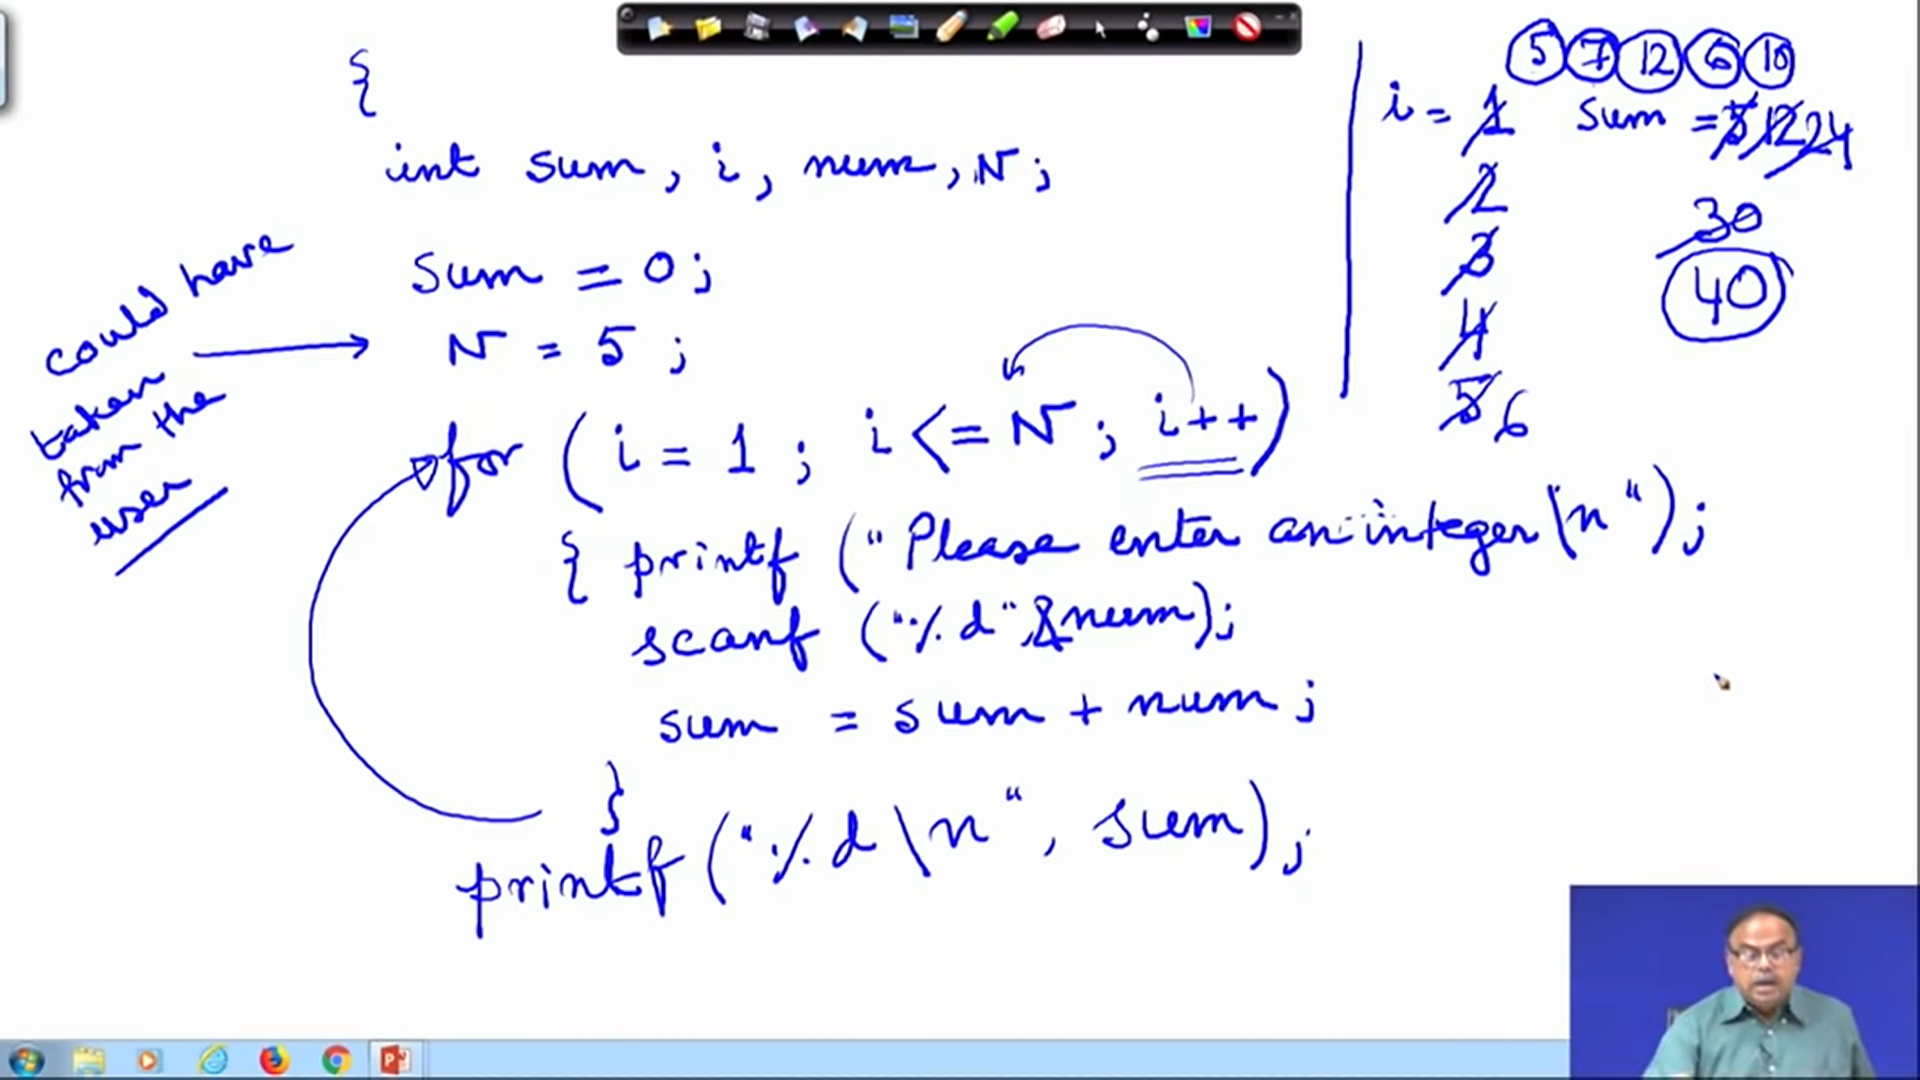 {
int sum, i, num, N;
sum = 0;
N = 5;
could have
taken
from the
user
for (i = 1; i <= N; i++)
{ printf ("Please enter an integer\n");
scanf ("%d", &num);
sum = sum + num;
}
printf ("%d\n", sum);
5 7 12 6 10
i = 1 sum = 5 12 24
2 30
3 40
4
5 6